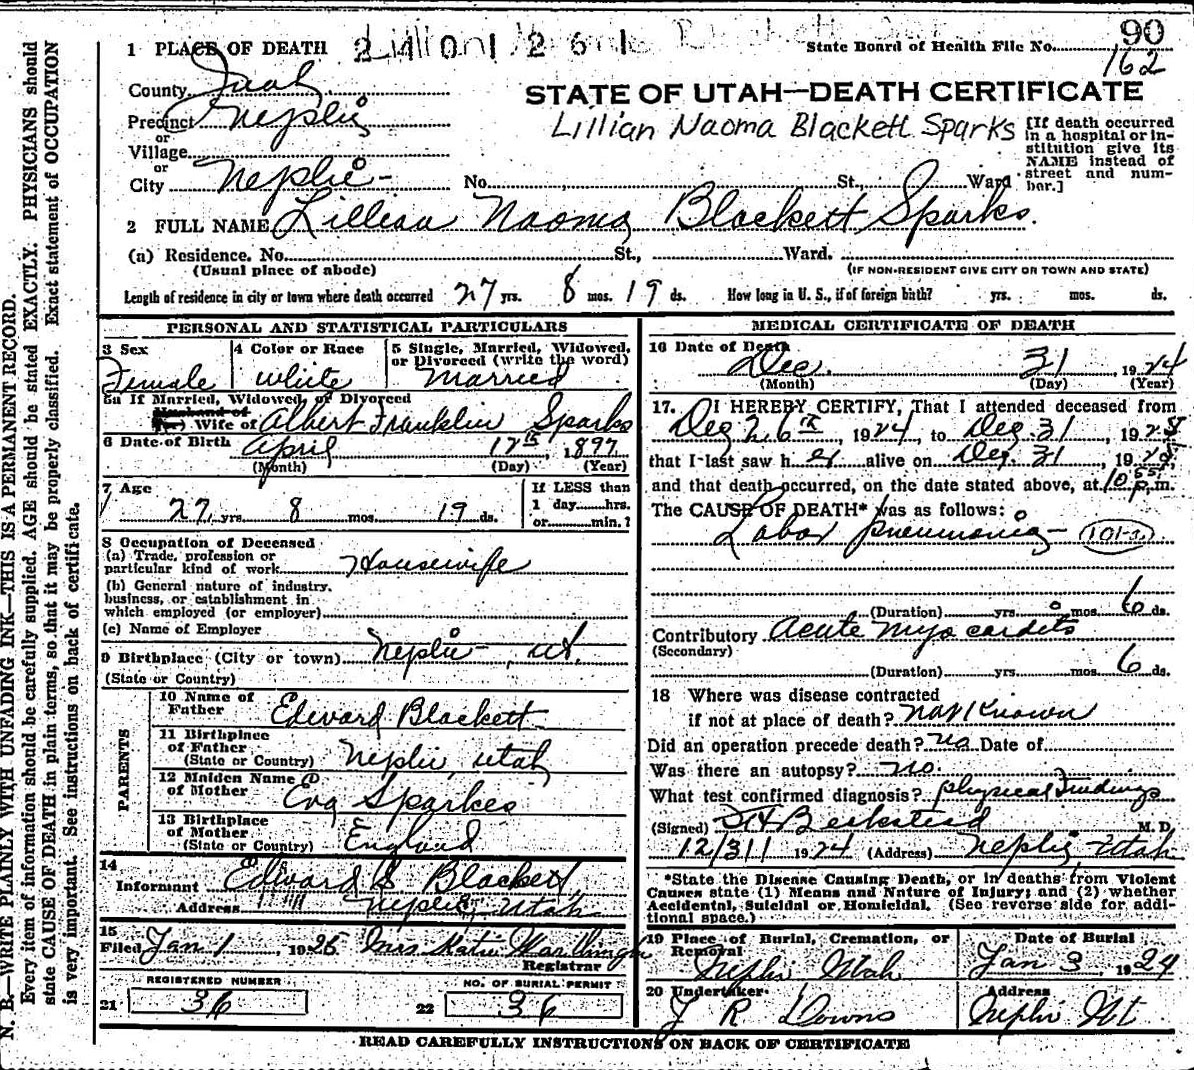 90
1 PLACE OF DEATH 2401261 State Board of Health File No. 162
County Juab
STATE OF UTAH—DEATH CERTIFICATE
Precinct Nephi
Lillian Naoma Blackett Sparks
or
Village
or
City Nephi No. St., Ward
[If death occurred
in a hospital or in-
stitution give its
NAME instead of
street and num-
ber.]
2 FULL NAME Lillian Naoma Blackett Sparks.
(a) Residence. No. St., Ward.
(Usual place of abode) (IF NON-RESIDENT GIVE CITY OR TOWN AND STATE)
Length of residence in city or town where death occurred 27 yrs. 8 mos. 19 ds. How long in U. S., if of foreign birth? yrs. mos. ds.
PERSONAL AND STATISTICAL PARTICULARS
3 Sex 4 Color or Race 5 Single, Married, Widowed,
or Divorced (write the word)
Female white Married
5a If Married, Widowed, or Divorced
Husband of
(or) Wife of Albert Franklin Sparks
6 Date of Birth April 12th, 1897
(Month) (Day) (Year)
7 Age If LESS than
1 day hrs.
27 yrs. 8 mos. 19 ds. or min.?
8 Occupation of Deceased
(a) Trade, profession or
particular kind of work Housewife
(b) General nature of industry,
business, or establishment in
which employed (or employer)
(c) Name of Employer
9 Birthplace (City or town) Nephi, ut.
(State or Country)
PARENTS
10 Name of
Father Edward Blackett
11 Birthplace
of Father
(State or Country) Nephi, Utah
12 Maiden Name
of Mother Eva Sparkes
13 Birthplace
of Mother
(State or Country) England
14
Informant Edward S Blackett
Address Nephi, Utah
15
Filed Jan 1 1925 Mrs Katie
Registrar
REGISTERED NUMBER NO. OF BURIAL PERMIT
21 36 22 36
MEDICAL CERTIFICATE OF DEATH
16 Date of Death
Dec. 31 1924
(Month) (Day) (Year)
17. I HEREBY CERTIFY, That I attended deceased from
Dec 26th, 1924, to Dec. 31, 192
that I last saw her alive on Dec. 31, 192
and that death occurred, on the date stated above, at 10 55 p.m.
The CAUSE OF DEATH* was as follows:
Lobar pneumonia 101-a
(Duration) yrs. mos. 6 ds.
Contributory Acute myocardits
(Secondary)
(Duration) yrs. mos. 6 ds.
18 Where was disease contracted
if not at place of death? not Known
Did an operation precede death? no Date of
Was there an autopsy? no.
What test confirmed diagnosis? physical Findings
(Signed) Beckstead M. D.
12/31 1924 (Address) Nephi, Utah
*State the Disease Causing Death, or in deaths from Violent
Causes state (1) Means and Nature of Injury; and (2) whether
Accidental, Suicidal or Homicidal. (See reverse side for addi-
tional space.)
19 Place of Burial, Cremation, or
Removal Date of Burial
Nephi Utah Jan 3, 1924
20 Undertaker Address
J R Downs Nephi Ut
READ CAREFULLY INSTRUCTIONS ON BACK OF CERTIFICATE
N. B.—WRITE PLAINLY WITH UNFADING INK—THIS IS A PERMANENT RECORD.
Every item of information should be carefully supplied. AGE should be stated EXACTLY. PHYSICIANS should
state CAUSE OF DEATH in plain terms, so that it may be properly classified. Exact statement of OCCUPATION
is very important. See instructions on back of certificate.